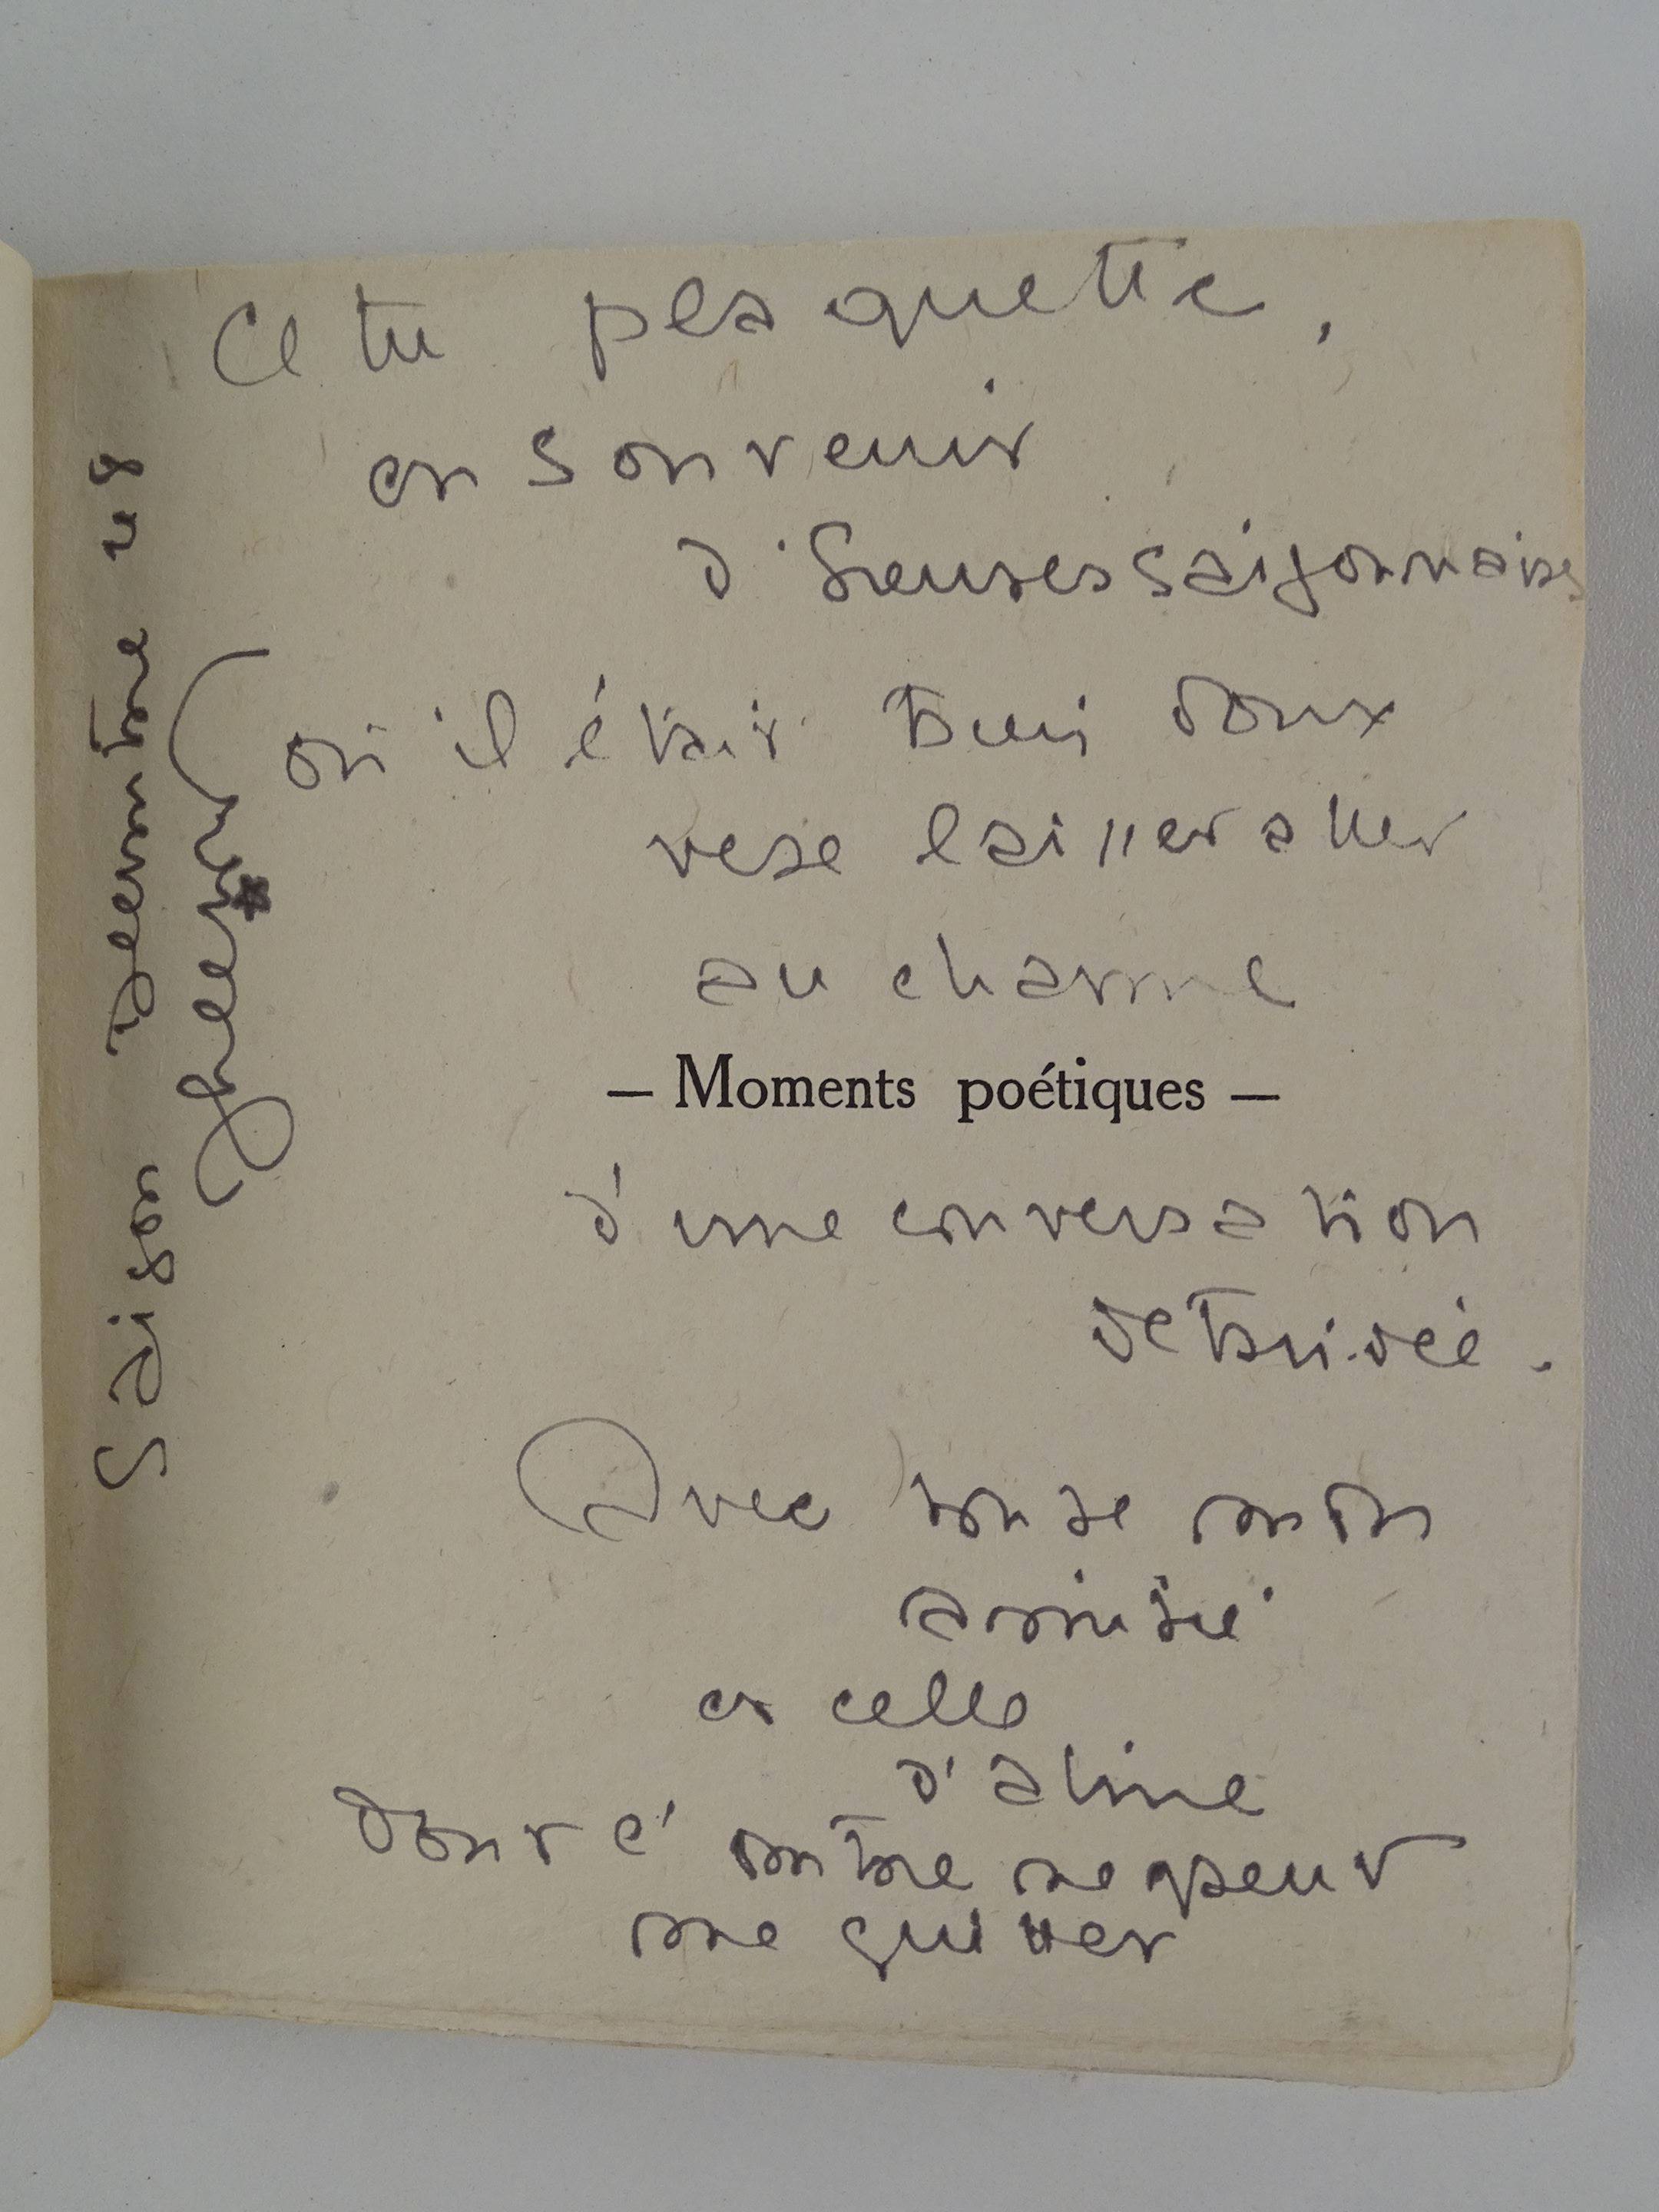 Cette plaquette,
en souvenir
d'heures saigonnaises
où il était bien doux
de se laisser aller
au charme
— Moments poétiques —
d'une conversation
débridée.
Avec toute mon
amitié
et celle
d'Aline
dont l'ombre ne peut
me quitter
Saigon décembre 48